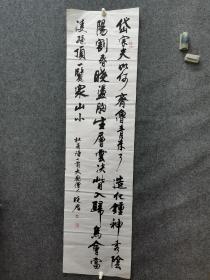 岱宗夫如何齊魯青未了造化鍾神秀陰
陽割昏曉盪胸生層雲決眥入歸鳥會當
凌絕頂一覽衆山小 杜甫詩一首